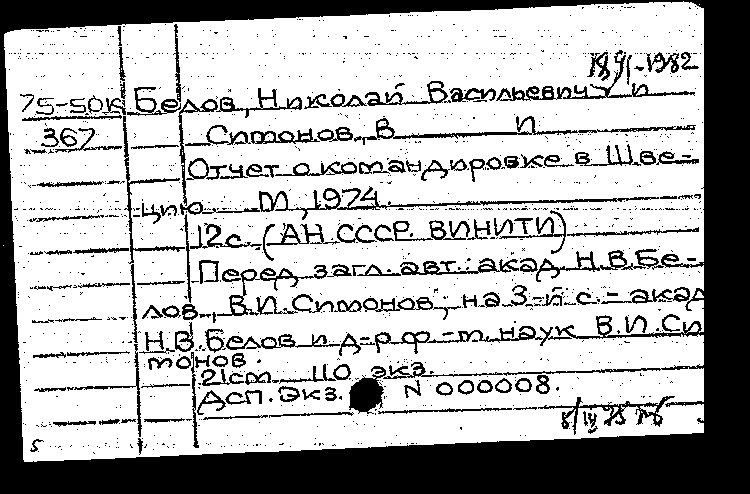 1891-1982
75-50К Белов, Николай Васильевич и
367 Симонов, В И
Отчет о командировке в Шве-
цию М, 1974.
12с. (АН СССР. ВИНИТИ)
Перед загл. авт.: акад. Н.В.Бе-
лов, В.И.Симонов; на 3-й с. - акад
Н.В.Белов и д-р ф.-м. наук В.И.Си
монов.
21см 110 экз.
Дсп. Экз. N 000008.
8/IV 75
5